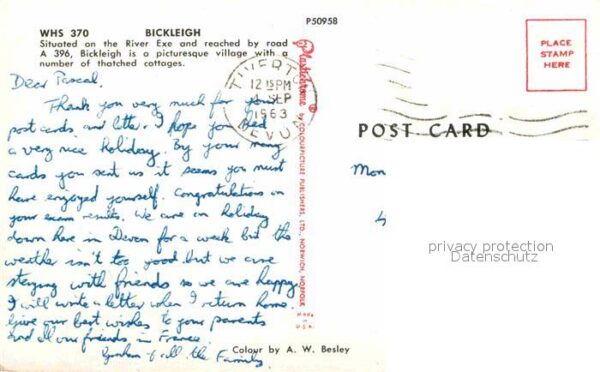 WHS 370 BICKLEIGH
Situated on the River Exe and reached by road
A 396, Bickleigh is a picturesque village with a
number of thatched cottages.
Dear Pascal,
Thank you very much for your
post cards and letter. I hope you had
a very nice holiday. By your many
cards you sent us it seems you must
have enjoyed yourself. Congratulations on
your exam results. We are on holiday
down here in Devon for a week but the
weather isn't too good but we are
staying with friends so we are happy.
I will write a letter when I return home.
Give our best wishes to your parents
and all our friends in France.
& all the Family
Colour by A. W. Besley
Plastichrome ®
BY COLOURPICTURE PUBLISHERS, LTD., NORWICH, NORFOLK
MADE IN
U.S.A.
P50958
TIVERTON
12 15PM
SEP
1963
DEVON
PLACE
STAMP
HERE
POST CARD
Mon
privacy protection
Datenschutz